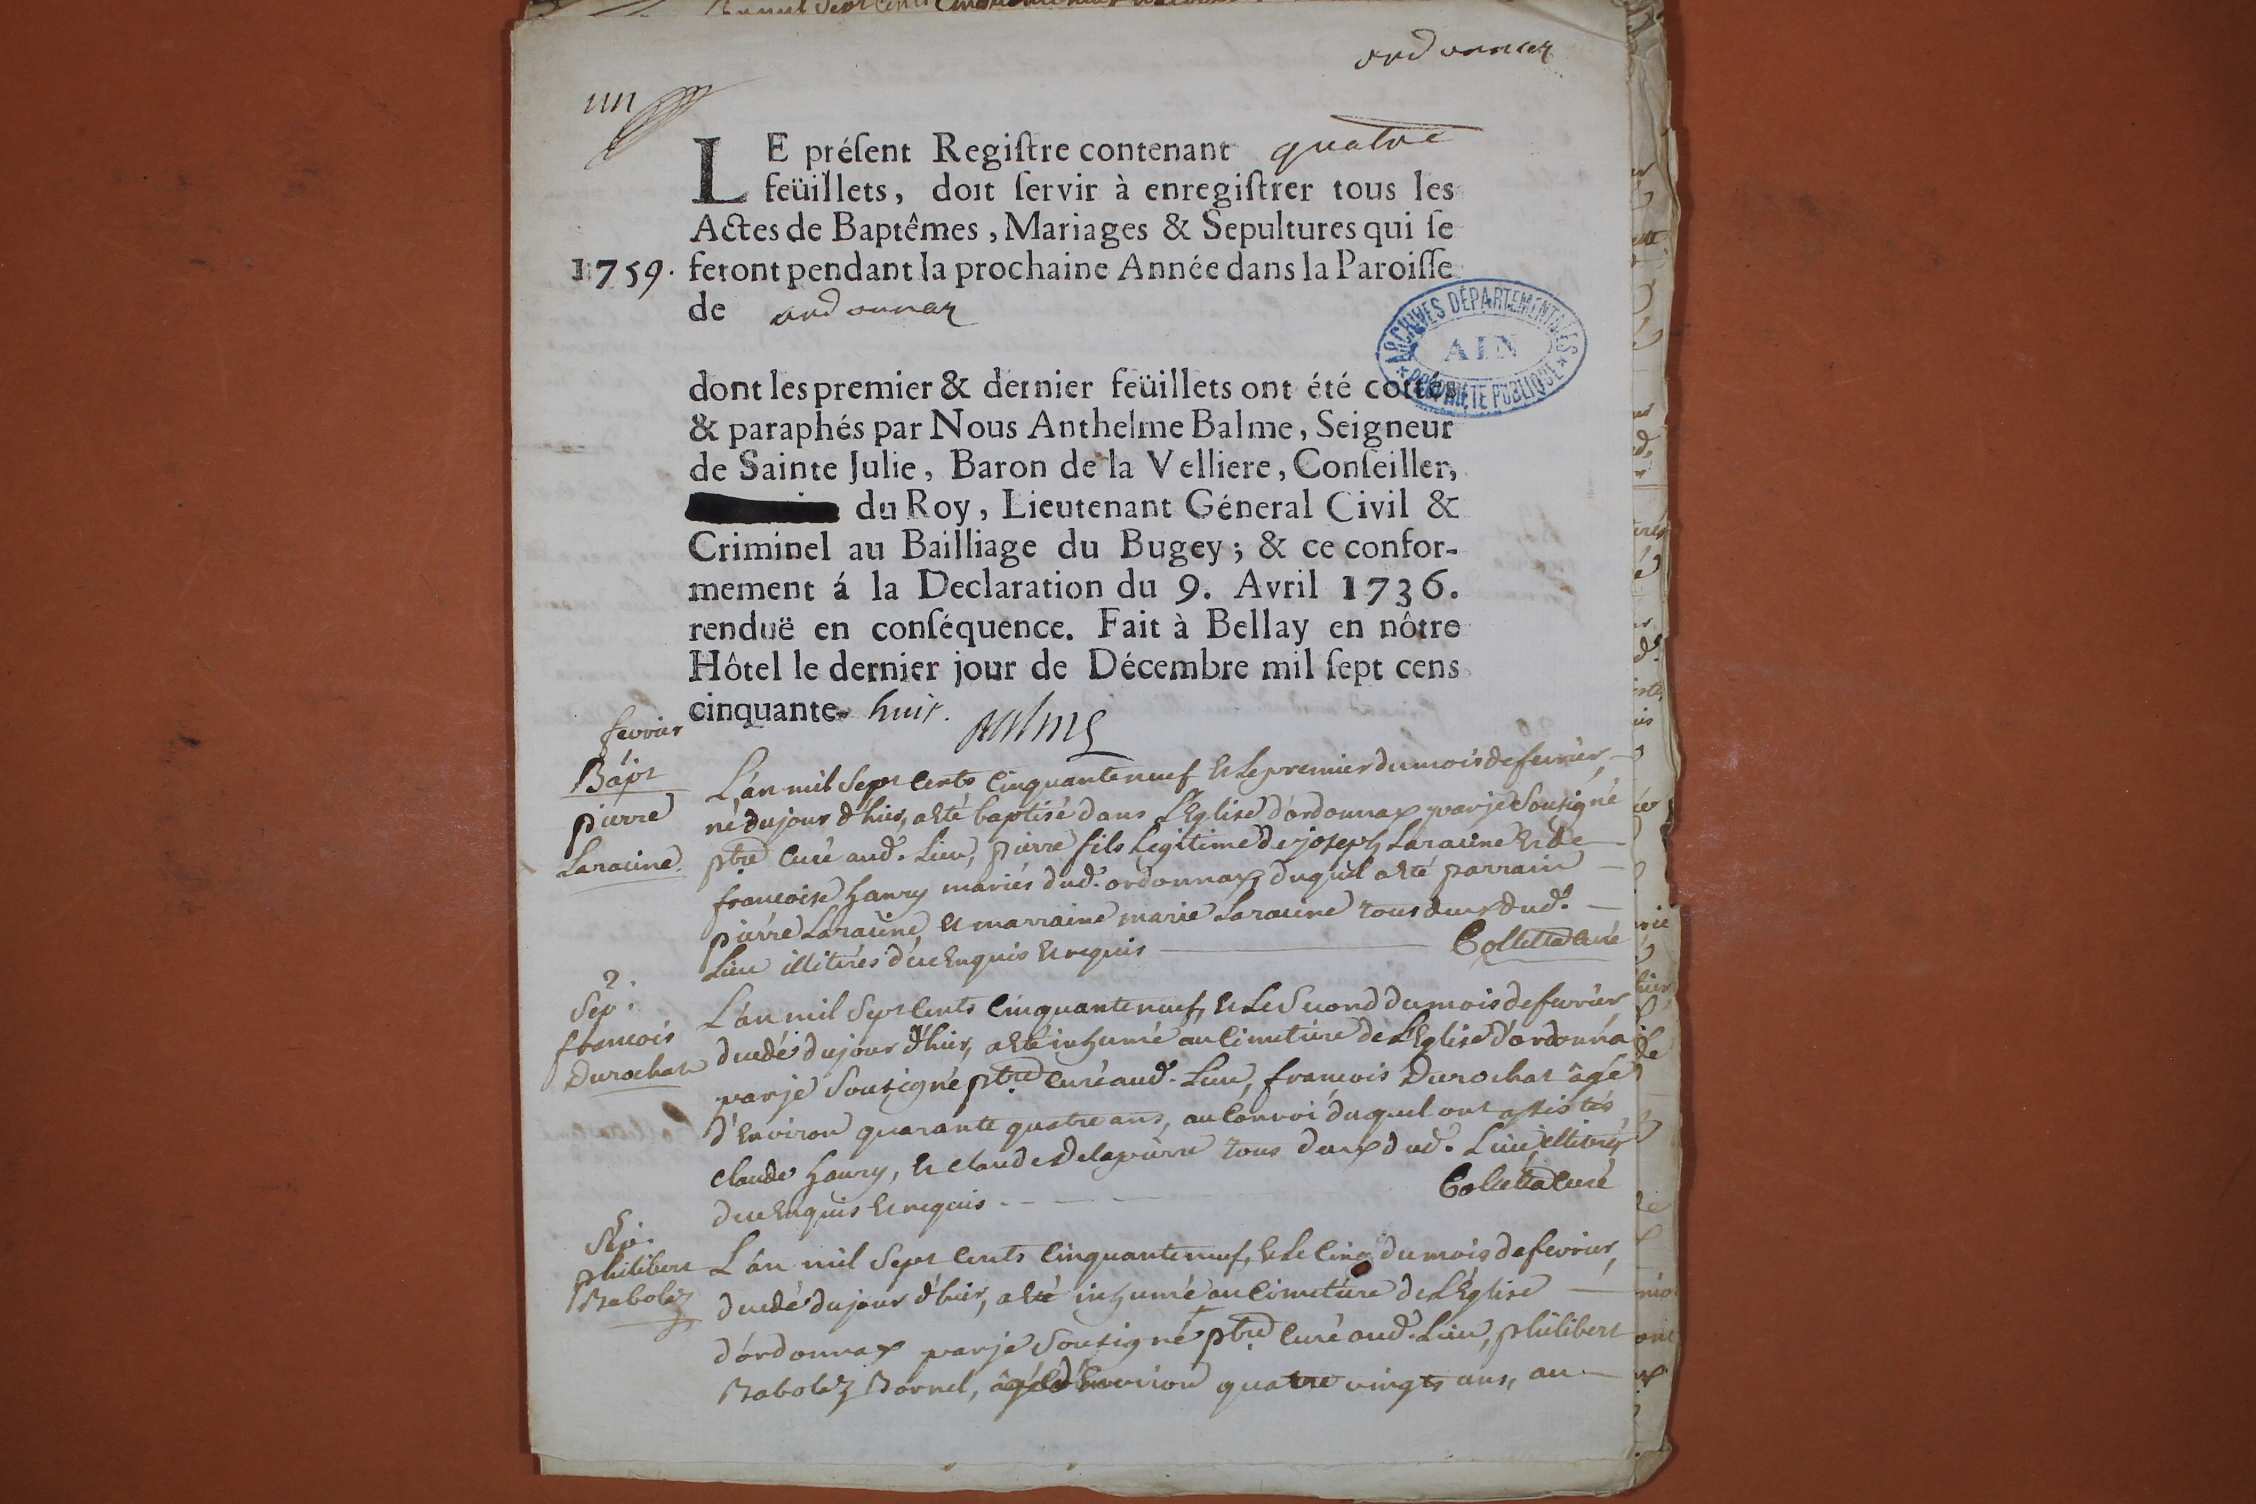 ordonnaz
un
LE préſent Regiſtre contenant quatre
feüillets, doit ſervir à enregiſtrer tous les
Actes de Baptêmes, Mariages & Sepultures qui ſe
1759. feront pendant la prochaine Année dans la Paroiſſe
de ordonnaz
ARCHIVES DÉPARTEMENTALES
AIN
PROPRIÉTÉ PUBLIQUE
dont les premier & dernier feüillets ont été cottés
& paraphés par Nous Anthelme Balme, Seigneur
de Sainte Julie, Baron de la Velliere, Conſeiller,
du Roy, Lieutenant Géneral Civil &
Criminel au Bailliage du Bugey; & ce confor-
mement á la Declaration du 9. Avril 1736.
renduë en conſéquence. Fait à Bellay en nôtre
Hôtel le dernier jour de Décembre mil ſept cens
cinquante- huit. Balme
fevrier
Bapt
pierre
Laracine.
L'an mil sept cents cinquante neuf et le premier du mois de fevrier,
né du jour d'hier, a eté baptisé dans L'Eglise d'ordonnax par je Sousigné
ptre curé aud. Lieu, pierre fils Legitime de joseph Laracine et de
francoise haury mariés dud. ordonnax, duquel a eté parrain
pierre Laracine et marraine marie Laracine tous deux dud.
Lieu illitérés de ce Enquis et requis Colletta curé
2
Sep.
francois
Durochat
L'an mil sept cents cinquante neuf, et le Second du mois de fevrier
decedé du jour d'hier, a eté inhumé au cimetiere de L'Eglise d'ordonna
par je Sousigné ptre curé aud. Lieu, francois Durochat âgé
d'Environ quarante quatre ans, au convoi duquel ont assistés
claude haury, et claude delapierre tous deux dud. Lieu illitérés
de ce Enquis et requis Colletta curé
5
Sep.
philibert
Babolaz
L'an mil sept cents cinquante neuf, et le cinq du mois de fevrier,
decedé du jour d'hier, a eté inhumé au cimetiere de L'Eglise
d'ordonnax par je Sousigné ptre curé aud. Lieu, philibert
Babolaz Bornel, âgé d'Environ quatre vingts ans, au